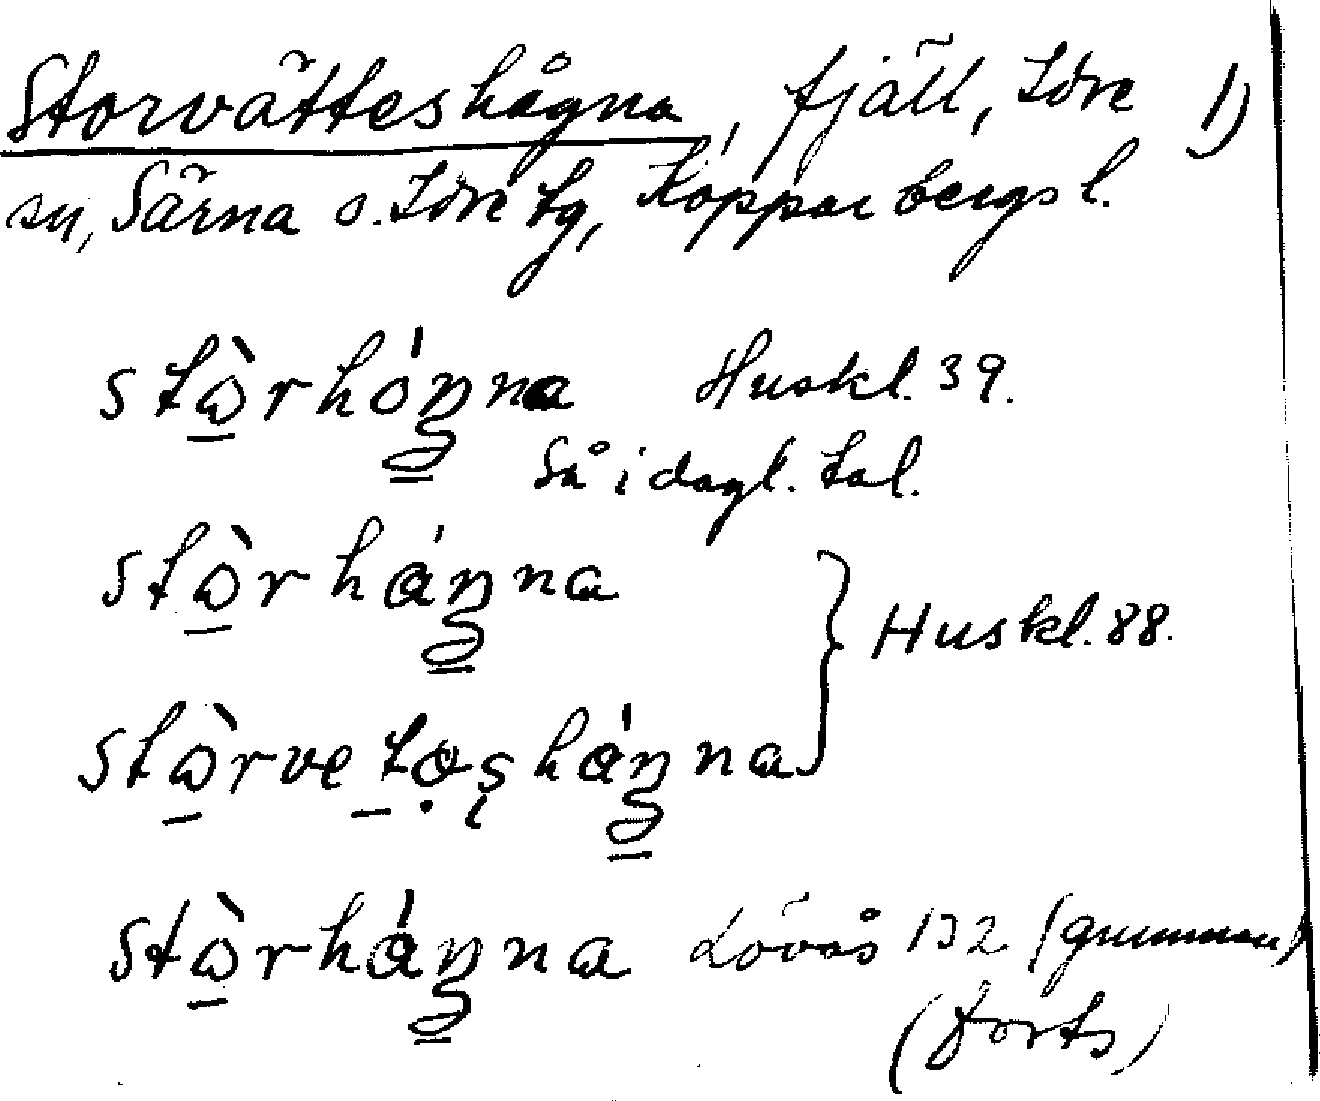 Storvätteshågna, fjäll, Idre 1)
sn, Särna o. Idre tg, Kopparbergs l.
stὼrhóŋna Huskl. 39.
Så i dagl. tal.
stὼrháŋna
Huskl. 88.
stὼrvetəşháŋna
stὼrháŋna Lövås 132 (gumman)
(forts)